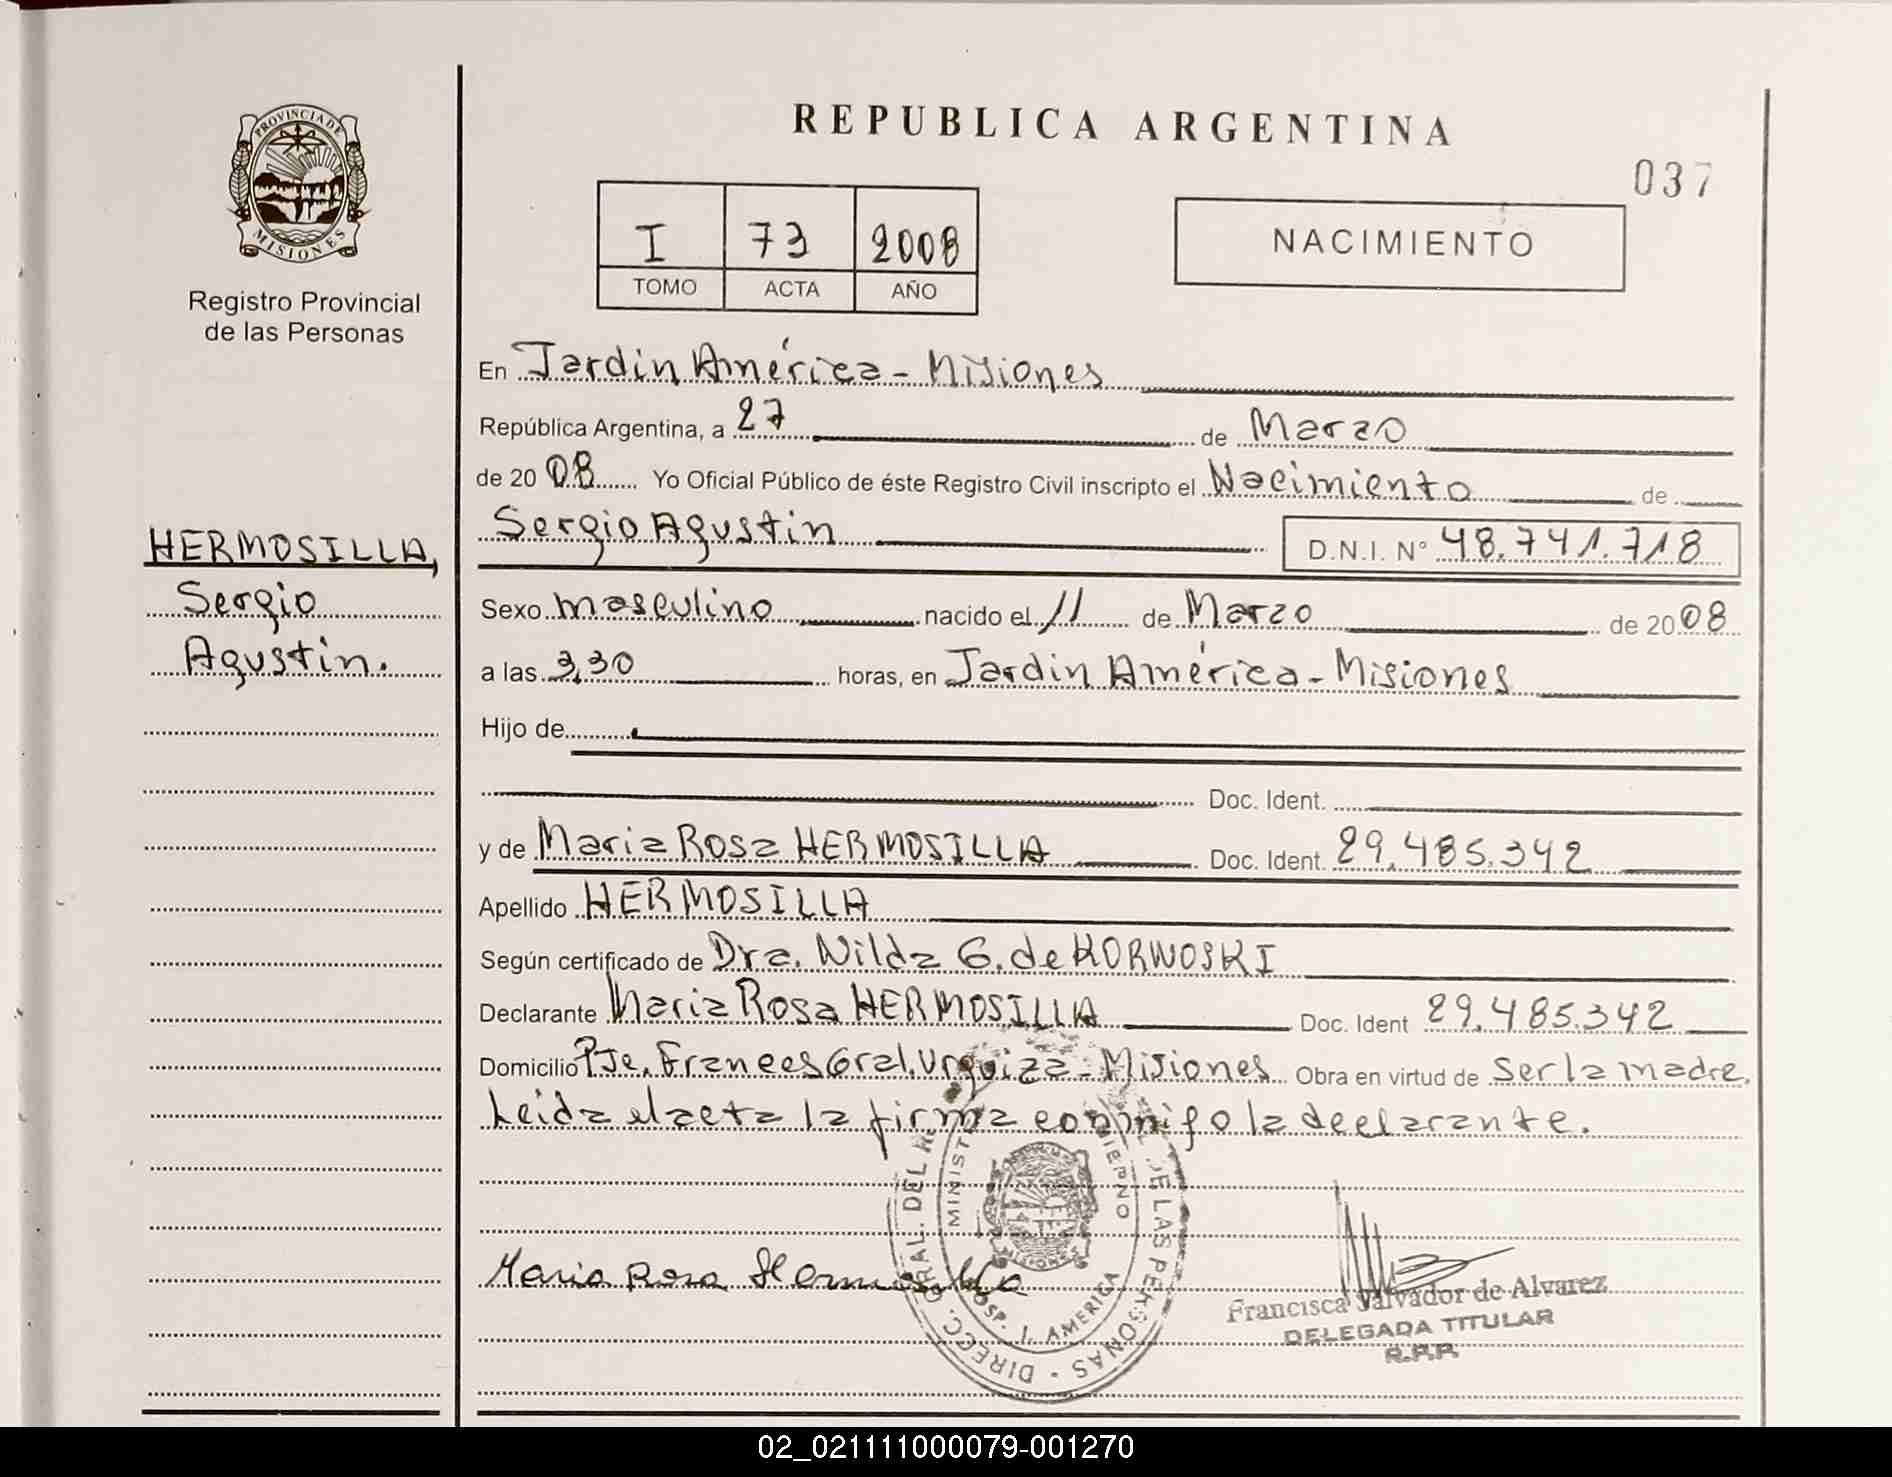 PROVINCIA DE
MISIONES
Registro Provincial
de las Personas
HERMOSILLA,
Sergio
Agustin.
REPUBLICA ARGENTINA
037
I 73 2008
TOMO ACTA AÑO
NACIMIENTO
En Jardin América - Misiones
República Argentina, a 27 de Marzo
de 20 08 Yo Oficial Público de éste Registro Civil inscripto el Nacimiento de
Sergio Agustin D.N.I. N° 48.741.718
Sexo masculino nacido el 11 de Marzo de 20 08
a las 3,30 horas, en Jardin América - Misiones
Hijo de
Doc. Ident.
y de Maria Rosa HERMOSILLA Doc. Ident. 29.485.342
Apellido HERMOSILLA
Según certificado de Dra. Nilda G. de KORNOSKI
Declarante Maria Rosa HERMOSILLA Doc. Ident 29.485.342
Domicilio Pje. Frances Gral. Urquiza - Misiones Obra en virtud de Ser la madre.
Leida el acta la firma conmigo la declarante.
DIRECC. GRAL. DEL DE LAS PERSONAS
Maria Rosa Hermosilla
HOSP. J. AMERICA
Francisca Salvador de Alvarez
DELEGADA TITULAR
R.P.P.
02_021111000079-001270